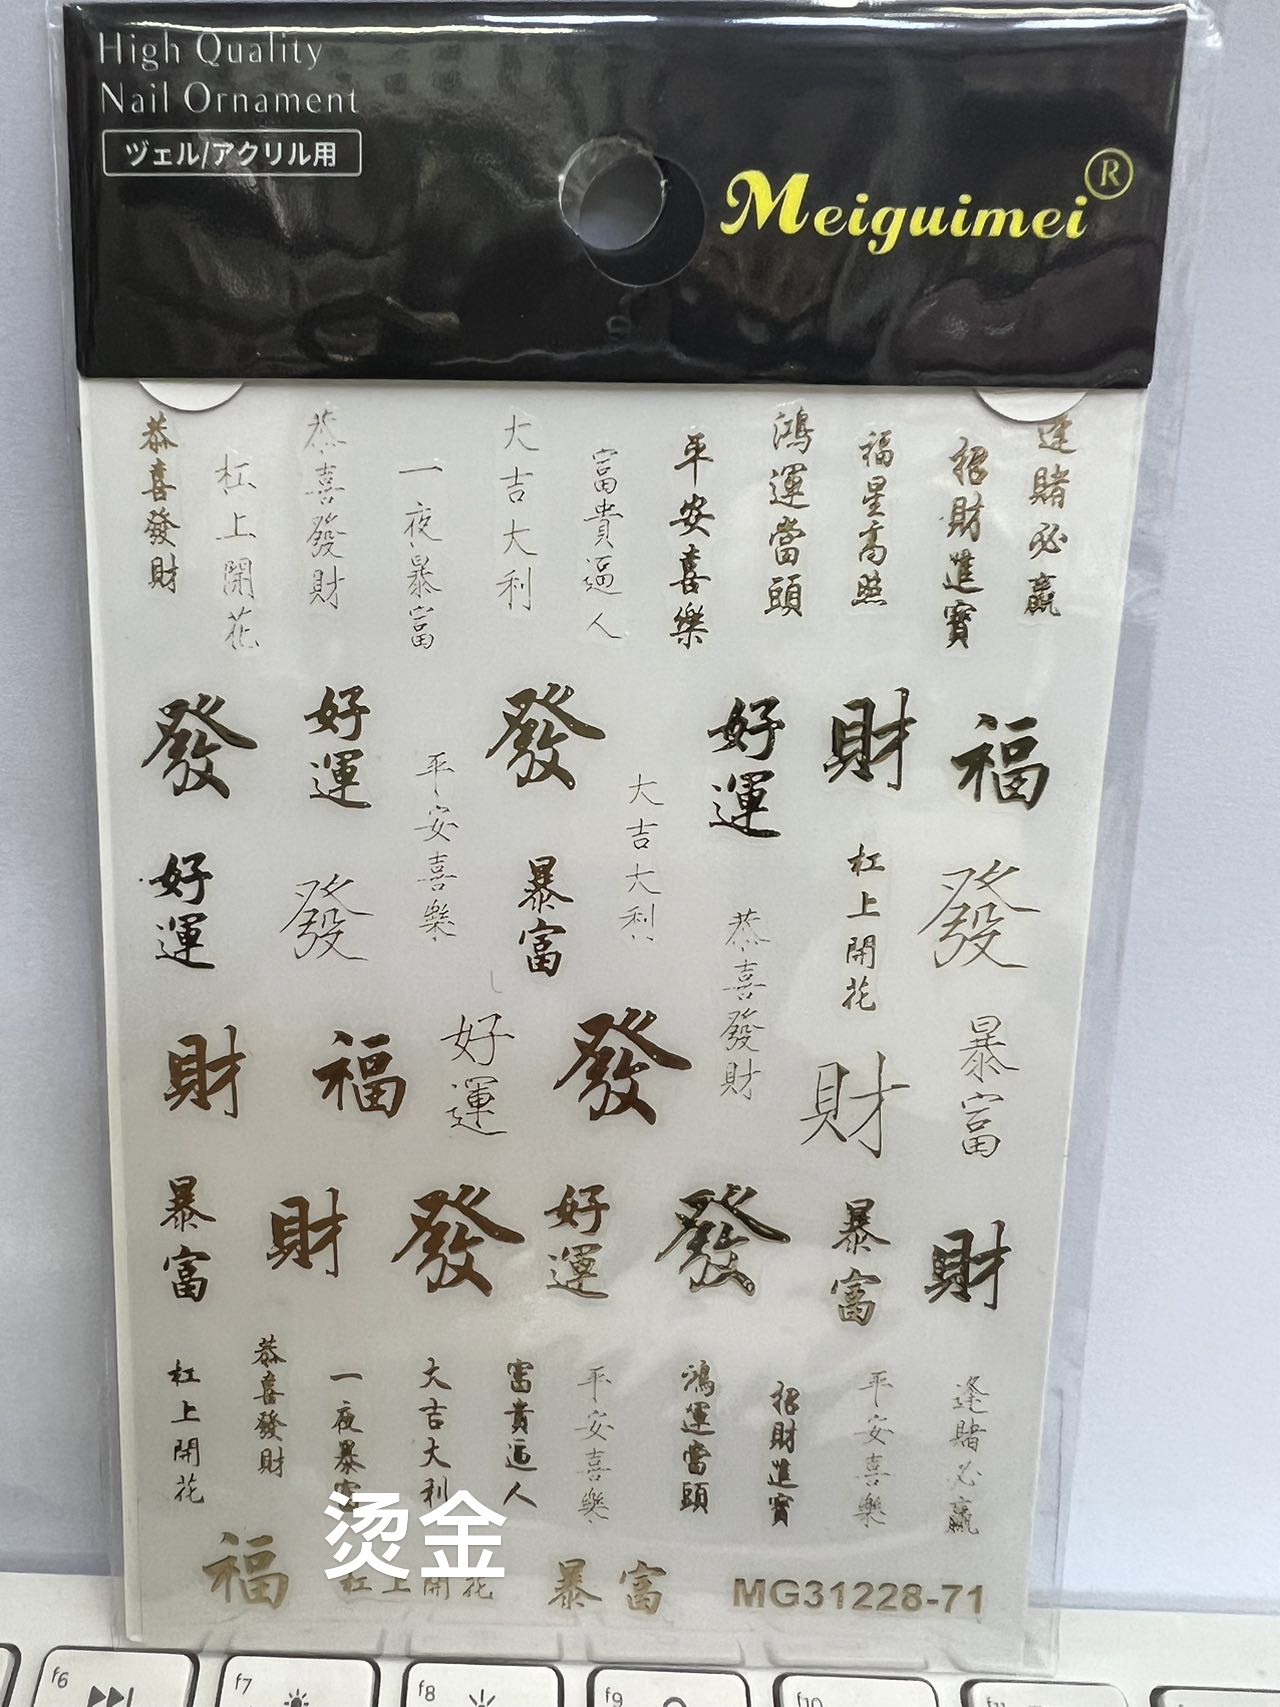 High Quality
Nail Ornament
ヅェル/アクリル用
Meiguimei®
恭喜發財
杠上開花
恭喜發財
一夜暴富
大吉大利
富貴逼人
平安喜樂
鴻運當頭
福星高照
招財進寶
逢賭必贏
發
好運
發
好運
財
福
平安喜樂
大吉大利
好運
發
暴富
恭喜發財
杠上開花
發
財
福
好運
發
財
暴富
暴富
財
發
好運
發
暴富
財
杠上開花
恭喜發財
一夜暴富
大吉大利
富貴逼人
平安喜樂
鴻運當頭
招財進寶
平安喜樂
逢賭必贏
烫金
福
杠上開花
暴富
MG31228-71
f6
f7
f8
f9
f10